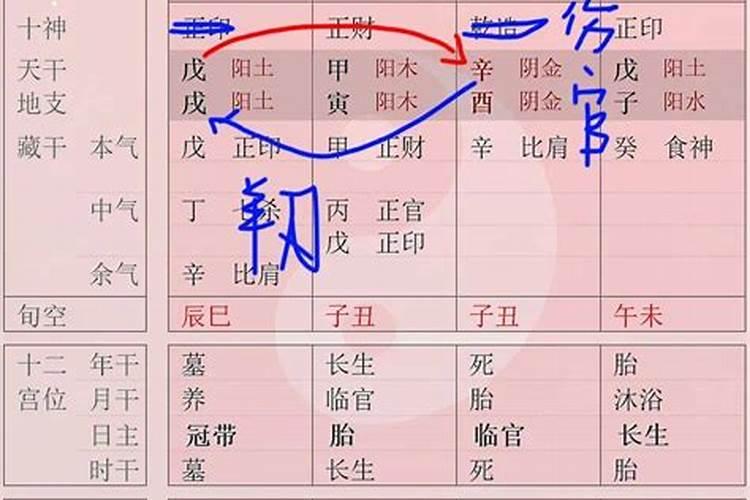 十神 正印 正财 乾造 正印
伤官
天干 戊 阳土 甲 阳木 辛 阴金 戊 阳土
地支 戌 阳土 寅 阳木 酉 阴金 子 阳水
藏干 本气 戊 正印 甲 正财 辛 比肩 癸 食神
中气 丁 七杀 丙 正官
戊 正印
余气 辛 比肩
旬空 辰巳 子丑 子丑 午未
十二 年干 墓 长生 死 胎
宫位 月干 养 临官 胎 沐浴
日主 冠带 胎 临官 长生
时干 墓 长生 死 胎